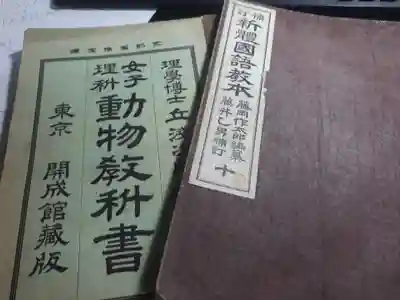 理學博士 丘淺次
女子
理科
動物教科書
東京 開成館藏版
補訂
新體國語教本
藤岡作太郎編纂
藤井乙男補訂
十